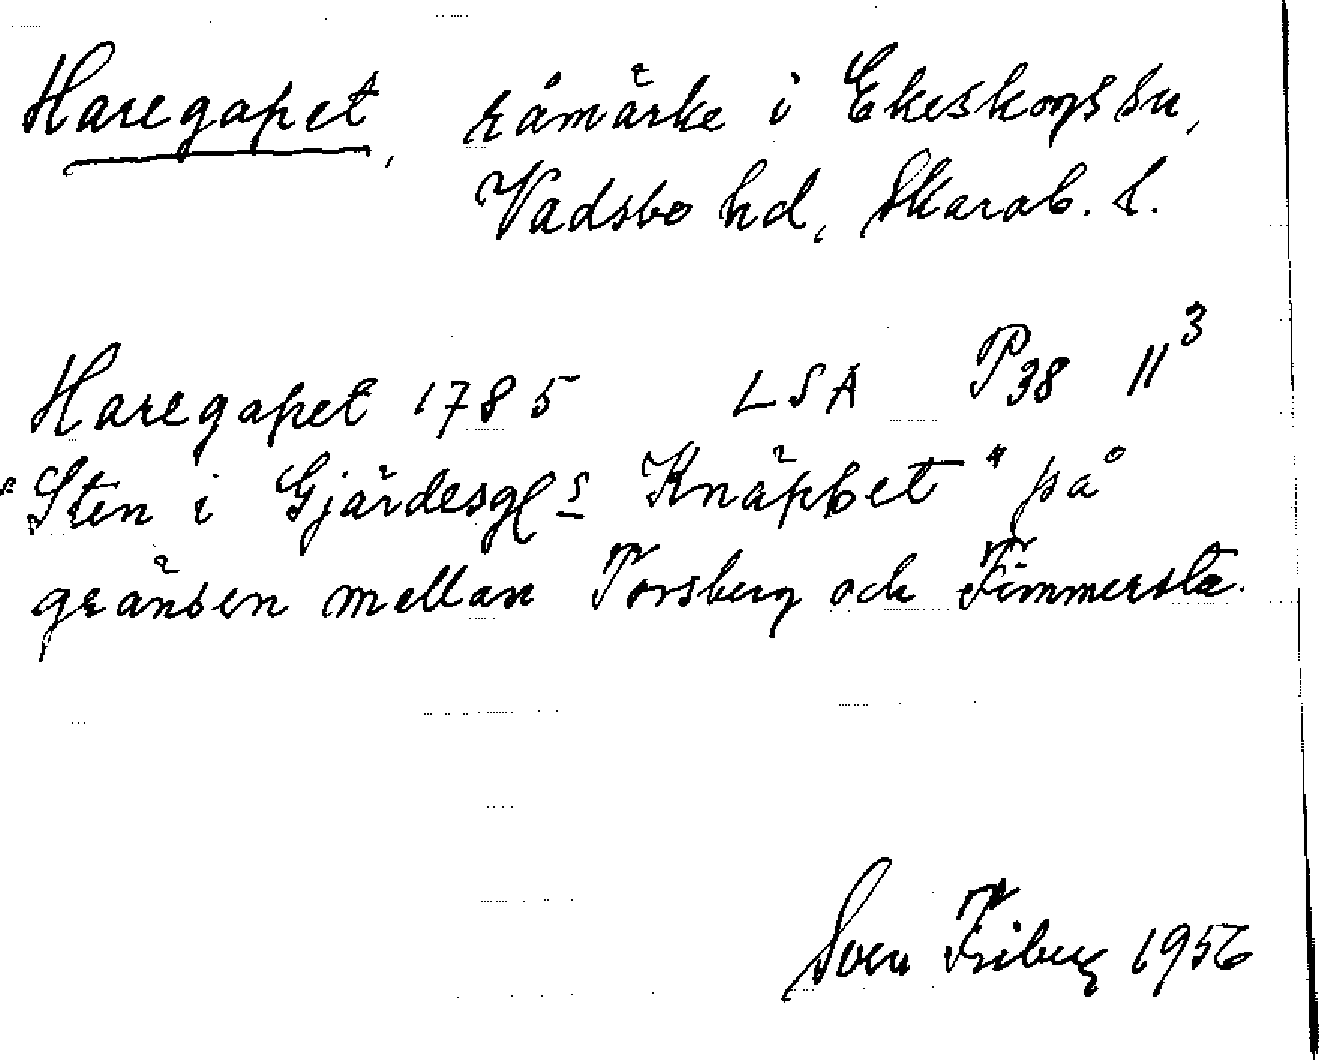 Haregapet, råmärke i Ekeskogs sn,
Vadsbo hd, Skarab. l.
Haregapet 1785 LSA P38 11³
"Sten i Gjärdesgl s Knäppet" på
gränsen mellan Torsberg och Fimmersta.
Sven Friberg 1956